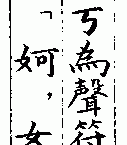 丂為聲符
「妸，女